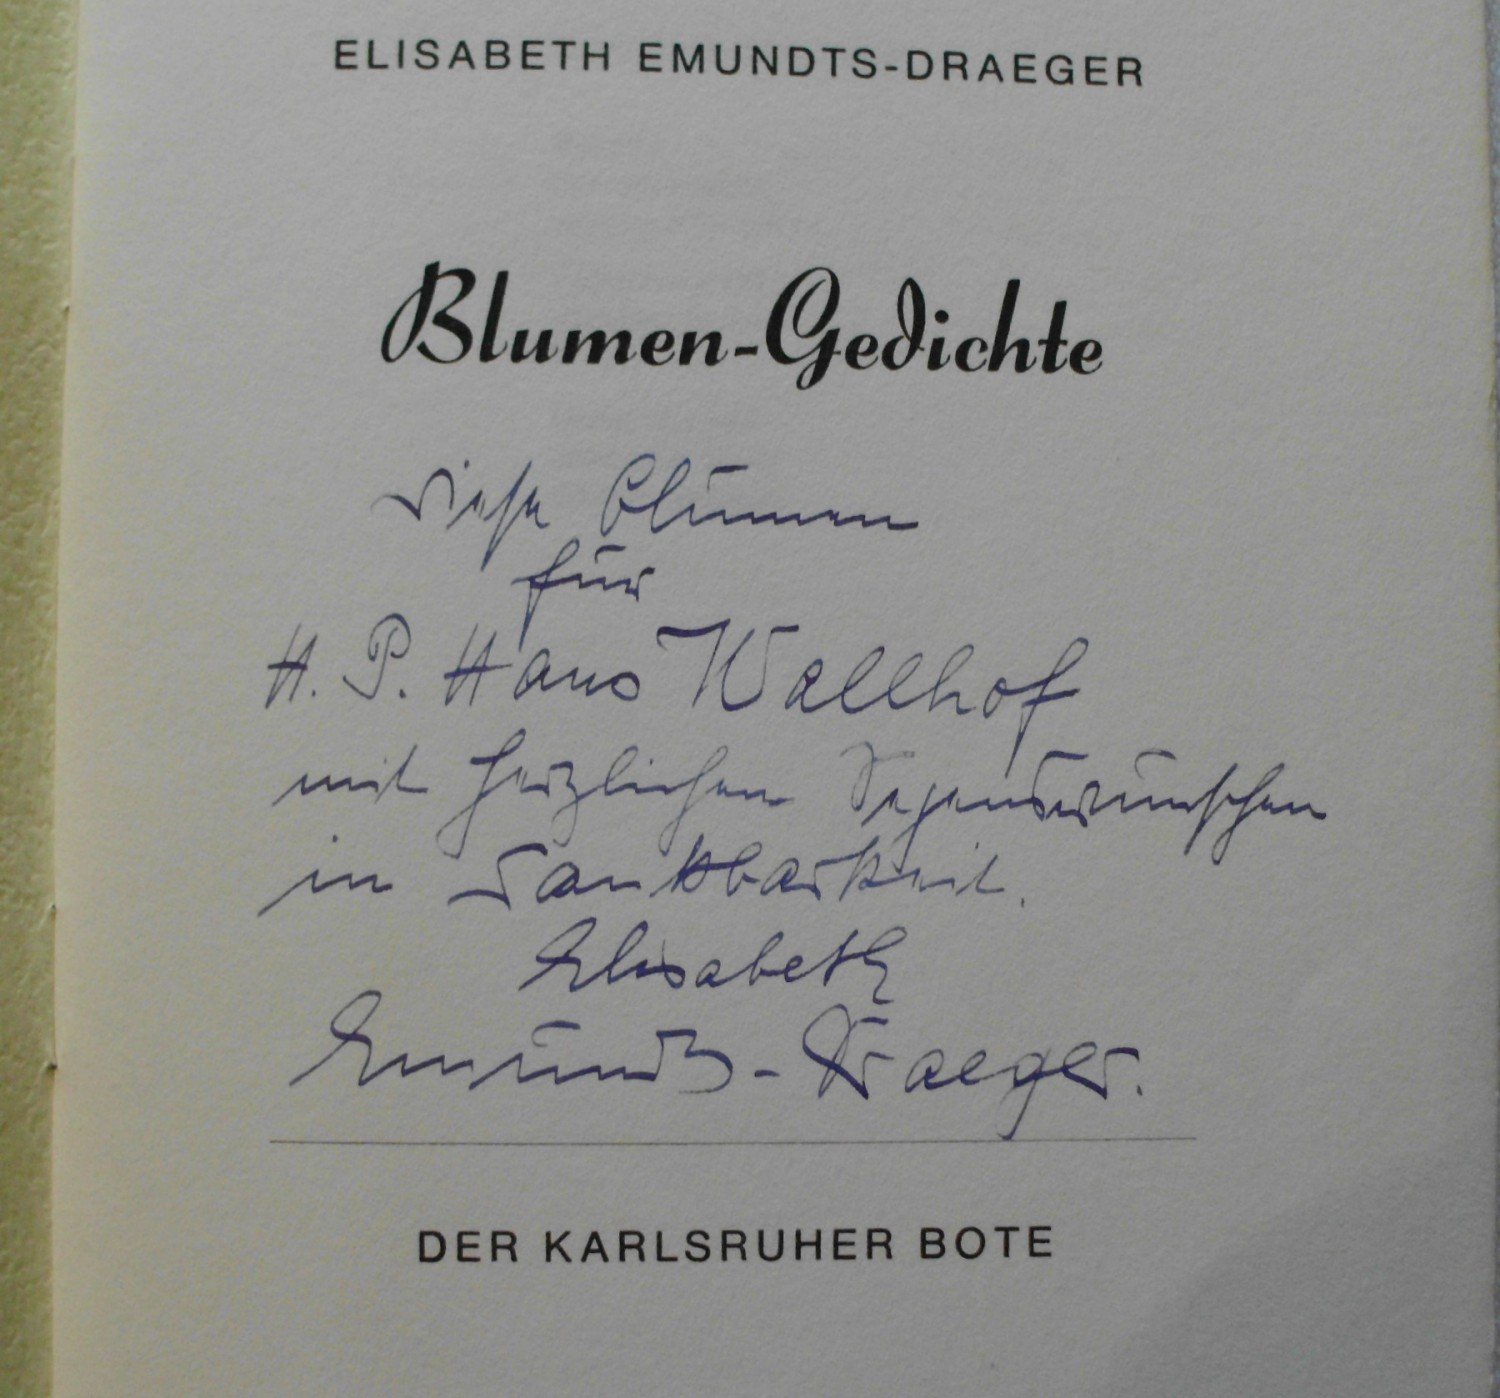 ELISABETH EMUNDTS-DRAEGER
Blumen-Gedichte
Diese Blumen
für
H. P. Hans Wallhof
mit herzlichen Segenswünschen
in Dankbarkeit.
Elisabeth
Emundts-Draeger.
DER KARLSRUHER BOTE